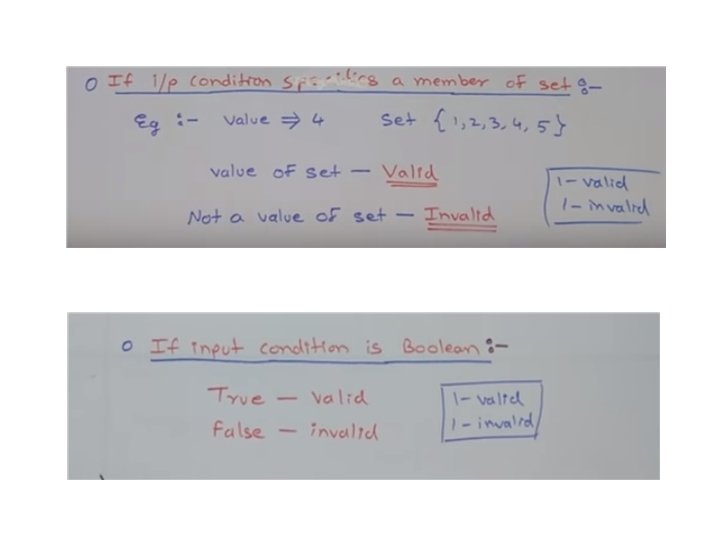 o If i/p condition specifies a member of set :-
Eg :- value ⇒ 4 set {1,2,3,4,5}
value of set – Valid
Not a value of set – Invalid
1 – valid
1 – invalid
o If input condition is Boolean :-
True – valid
false – invalid
1 – valid
1 – invalid